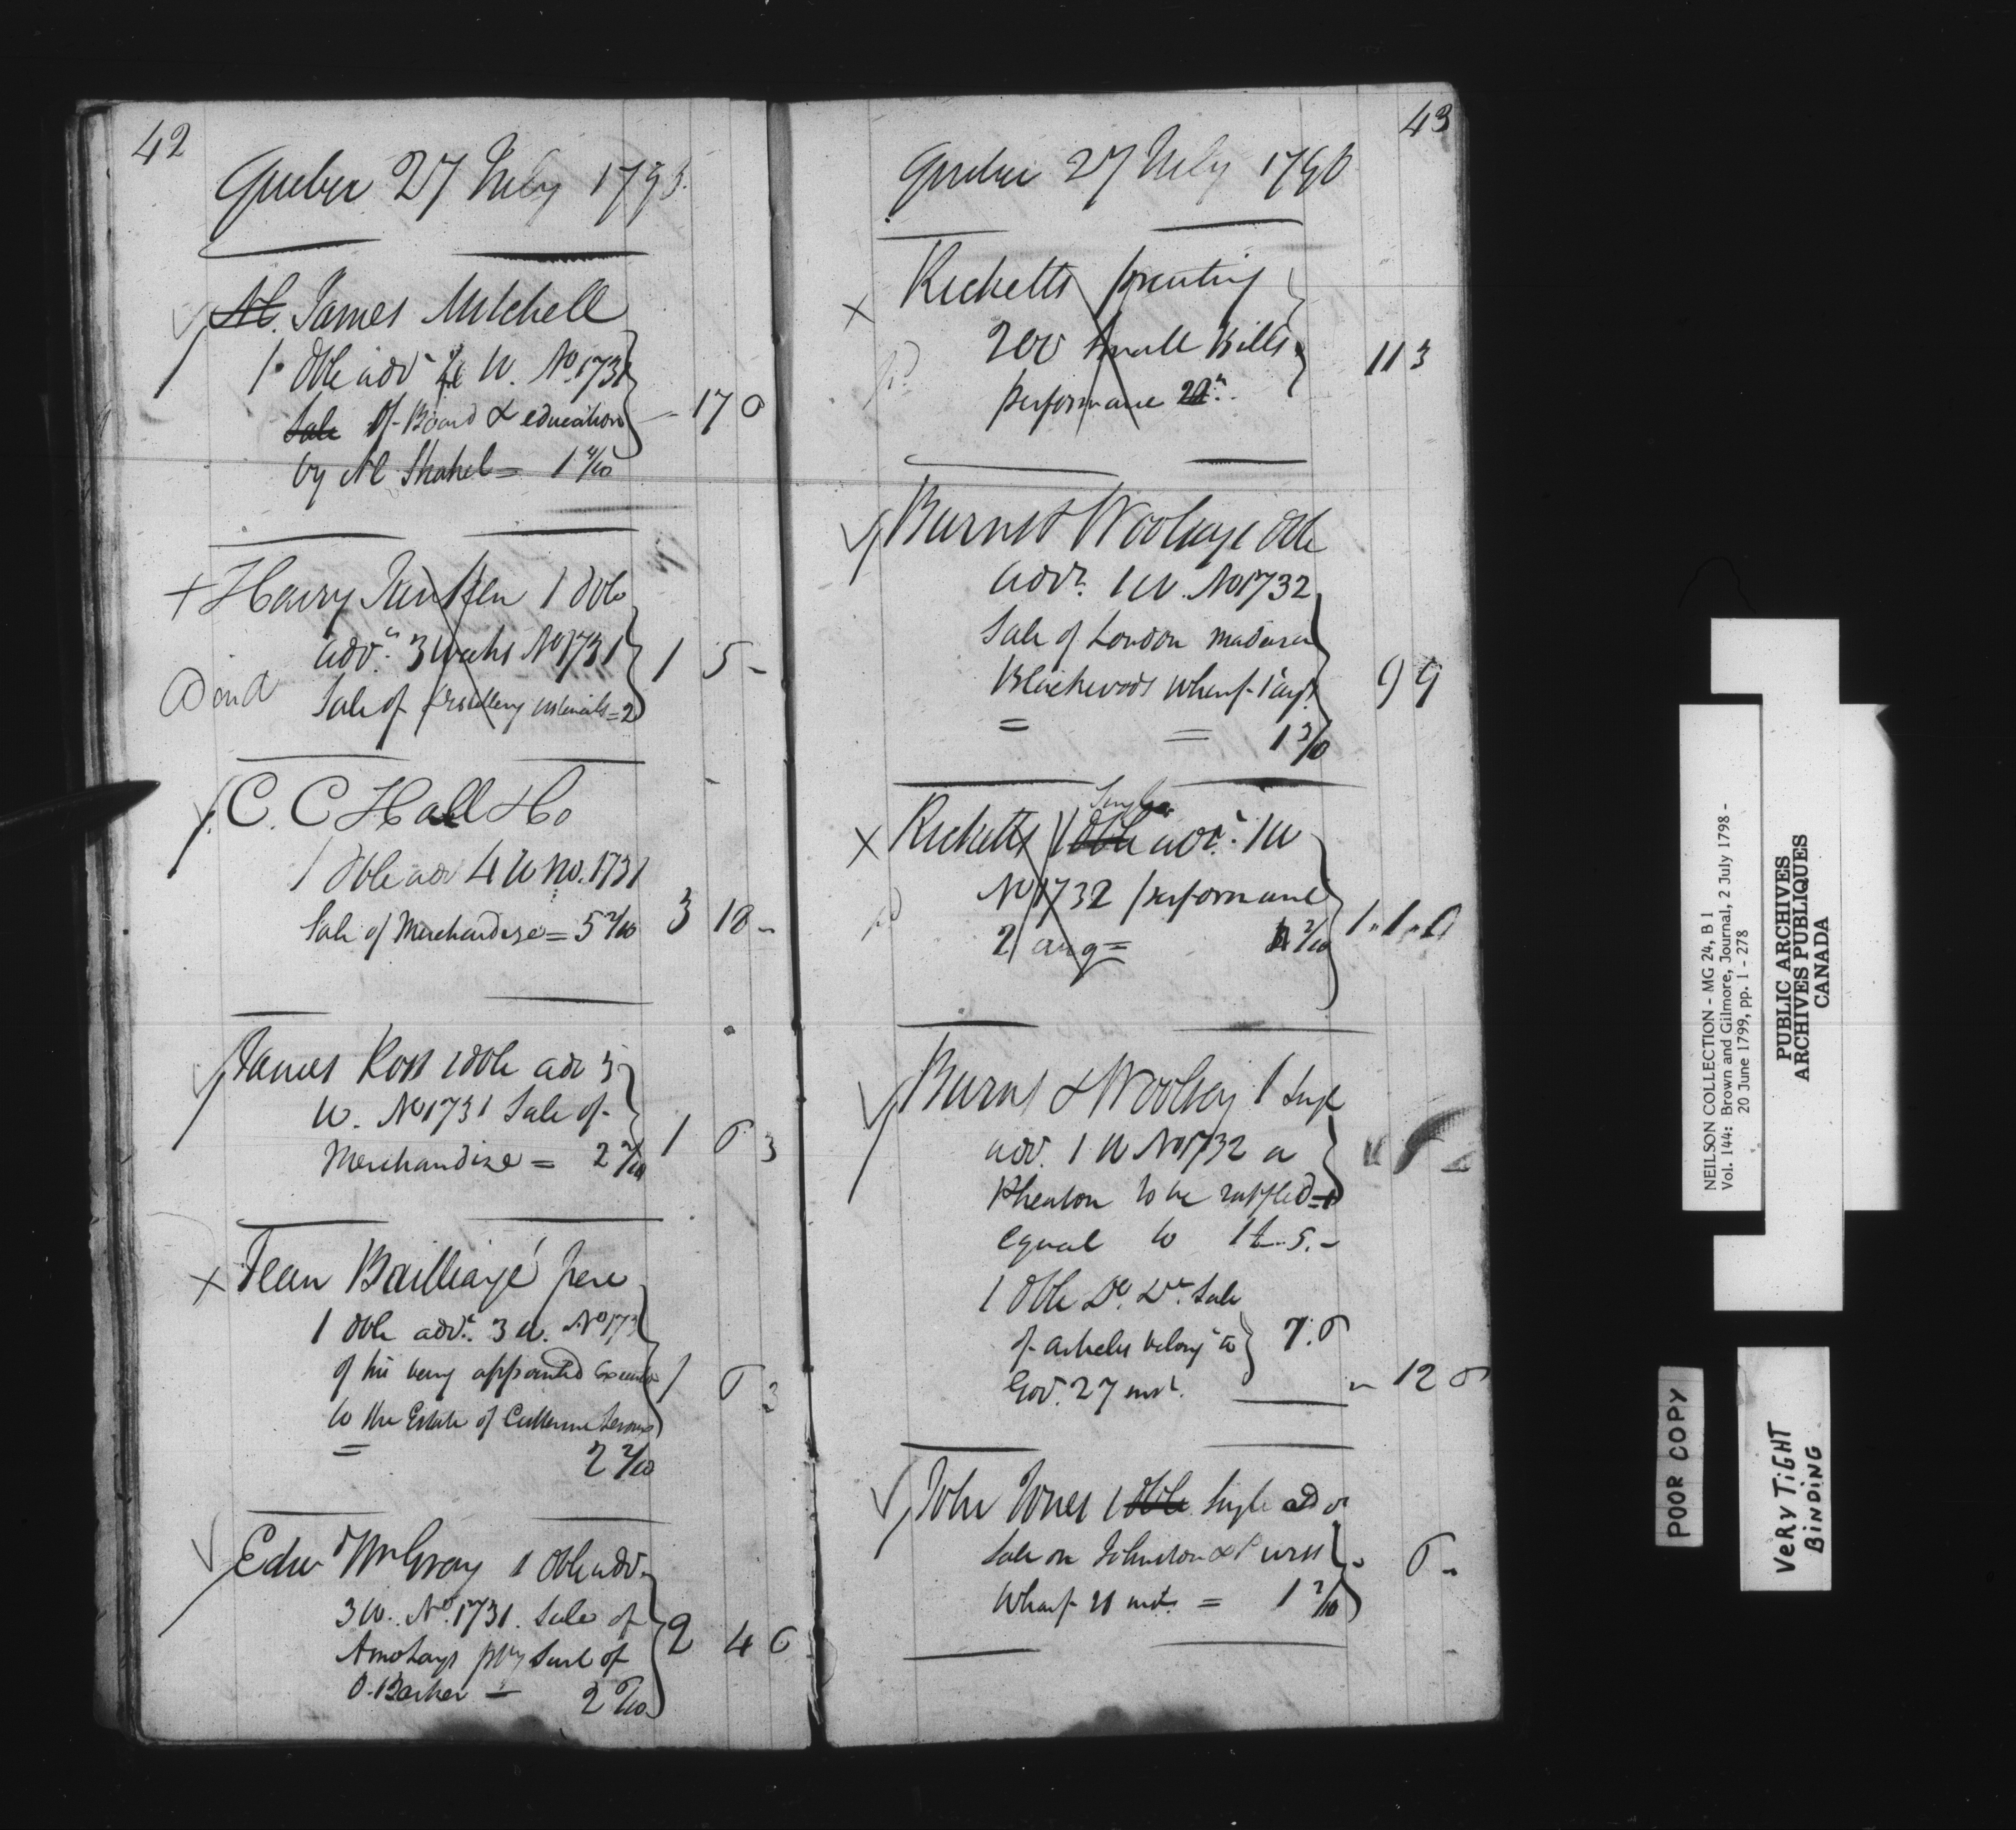 42
Quebec 27 July 1798.
M. James Mitchell
1 dble adv 4 W. No. 1731
Sale of Board & education
by M Skakel = 1 4/10
17 6
Henry Junken 1 dble
adv.r 3 weeks No 1731
Sale of distillery utensils = 2
1 5 -
C. C Hall & Co
1 dble adv 4 W No. 1731
Sale of Merchandize = 5 2/10
3 18 -
James Ross 1 dble adv 3
W. No 1731 Sale of
Merchandize = 2 2/10
1 6 3
Jean Bailliargé pere
1 dble adv.r 3 W. No 173
of his being appointed Executor
to the Estate of
= 2 2/10
1 6 3
Edw.d Wm Gray 1 dble adv.
3 W. No. 1731. Sale of
ppy Suit of
O. Barker = 2 6/10
2 4 6
43
Quebec 27 July 1798
Ricketts printing
200 small Bills
performance
11 3
Burns & Woolsey 1 dble
adv.r 1 W. No 1732
Sale of London madeira
Blackwoods wharf 1 augt
= = 1 3/10
9 9
Single
Ricketts 1 dble adv.r 1 W
No 1732 performance
2 aug = 2/10
Burns & Woolsey 1 Sugl
adv. 1 W No 1732 a
Pheaton to be raffled = 1
equal to 5. -
1 dble Do. Do. Sale
of articles belong to
Gov. 27 inst.
7. 6
12 6
John Jones 1 dble Single adv
Sale on Johnston & Purss
Wharf 28 inst. = 1 2/10
6 -
NEILSON COLLECTION - MG 24, B 1
Vol. 144: Brown and Gilmore, Journal, 2 July 1798 -
20 June 1799, pp. 1 - 278
PUBLIC ARCHIVES
ARCHIVES PUBLIQUES
CANADA
POOR COPY
VERY TIGHT
BINDING